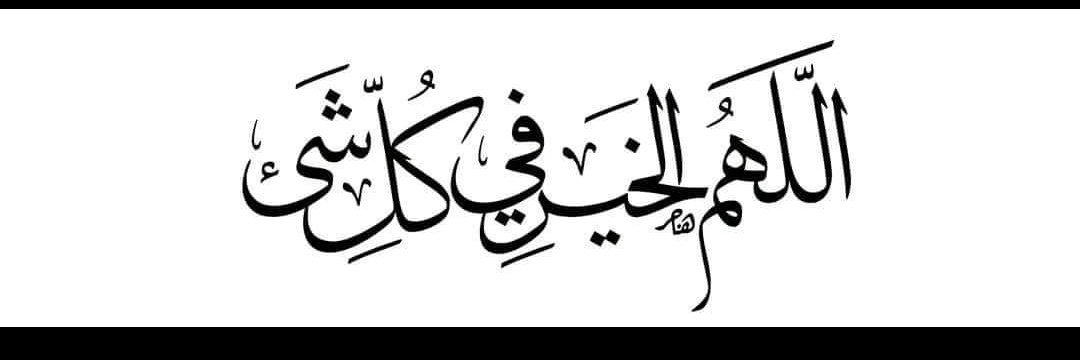 اللَّهُمَ الخَيرِ فِي كُلِّ شَئ